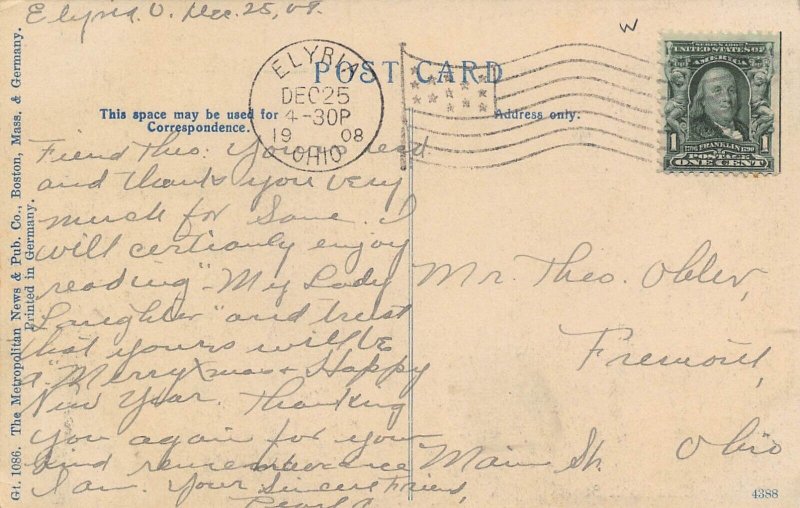 Elyria, O. Dec. 25, 08.
W
POST CARD
This space may be used for
Correspondence.
Address only.
ELYRIA
DEC 25
4-30P
19 08
OHIO
SERIES 1902
UNITED STATES OF
AMERICA
1 1
1706 FRANKLIN 1790
POSTAGE
ONE CENT
Gt. 1086. The Metropolitan News & Pub. Co., Boston, Mass. & Germany.
Printed in Germany.
Friend Theo. Yours rec'd
and thank you very
much for same. I
will certianly enjoy
reading "My Lady
Laughter" and trust
that yours will be
a "Merry Xmas & Happy
New Year. Thanking
you again for your
kind rememberance
I am. Your Sincere Friend,
Pearl
Mr. Theo. Obler,
Fremont,
Main St. Ohio
4388